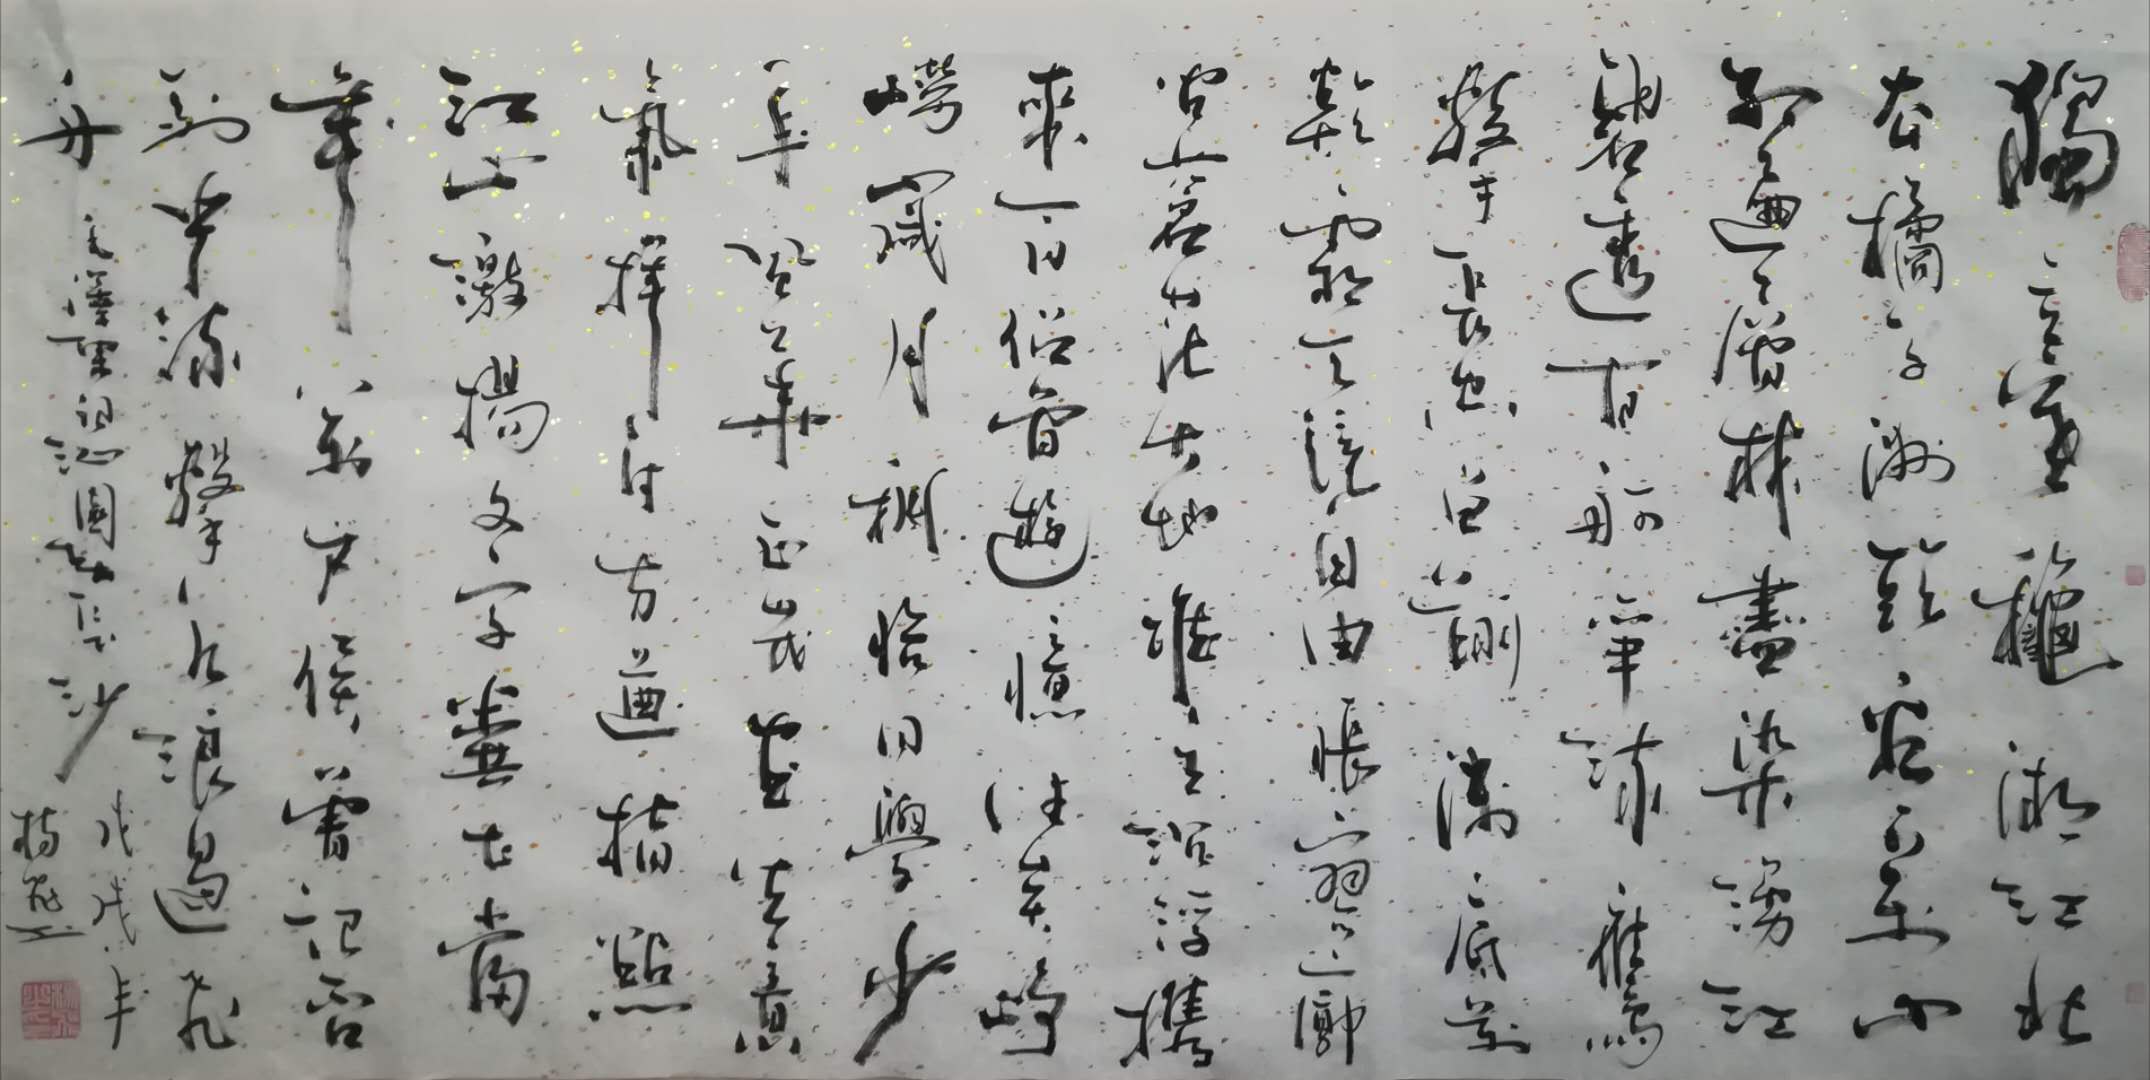 獨立寒龝湘江北
去橘子洲頭看万山
紅遍層林盡染漫江
碧透百舸爭流鷹
擊長空魚翔淺底萬
類霜天競自由悵寥廓
問蒼茫大地誰主沉浮攜
來百侣曾遊憶往昔崢
嶸歲月稠恰同學少
年風華正茂書生意
氣揮斥方遒指點
江山激揚文字糞土當
年萬户侯曾記否
到中流擊水浪遏飛
舟 毛澤東詞沁園春長沙
戊戌年